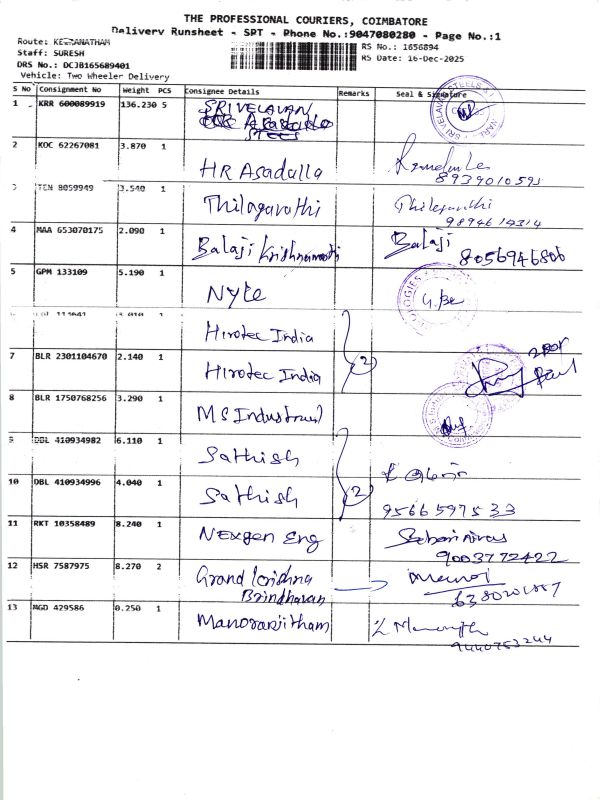 THE PROFESSIONAL COURIERS, COIMBATORE
Delivery Runsheet - SPT - Phone No.:9047080280 - Page No.:1
Route: KEERANATHAM
Staff: SURESH
DRS No.: DCJB165689401
Vehicle: Two Wheeler Delivery
RS No.: 1656894
RS Date: 16-Dec-2025
S No Consignment No Weight PCS Consignee Details Remarks Seal & Signature
1 KRR 600089919 136.230 5 SRIVELAVAN
STEES
2 KOC 62267081 3.870 1 HR Asadulla
8939010595
3 TEN 8059949 3.540 1 Thilagavathi
9894614314
4 MAA 653070175 2.090 1 Balaji Krishnamoorthi Balaji
8056946806
5 GPM 133109 5.190 1 Nyte
Hirotec India
7 BLR 2301104670 2.140 1 Hirotec India (2)
8 BLR 1750768256 3.290 1 MS Industrial
9 DBL 410934982 6.110 1 Sathish
10 DBL 410934996 4.040 1 Sathish (2)
9566597533
11 RKT 10358489 8.240 1 Nexgen Eng
9003772422
12 HSR 7587975 8.270 2 Grand krishna
Brindhavan
13 MGD 429586 0.250 1 Manoranjitham